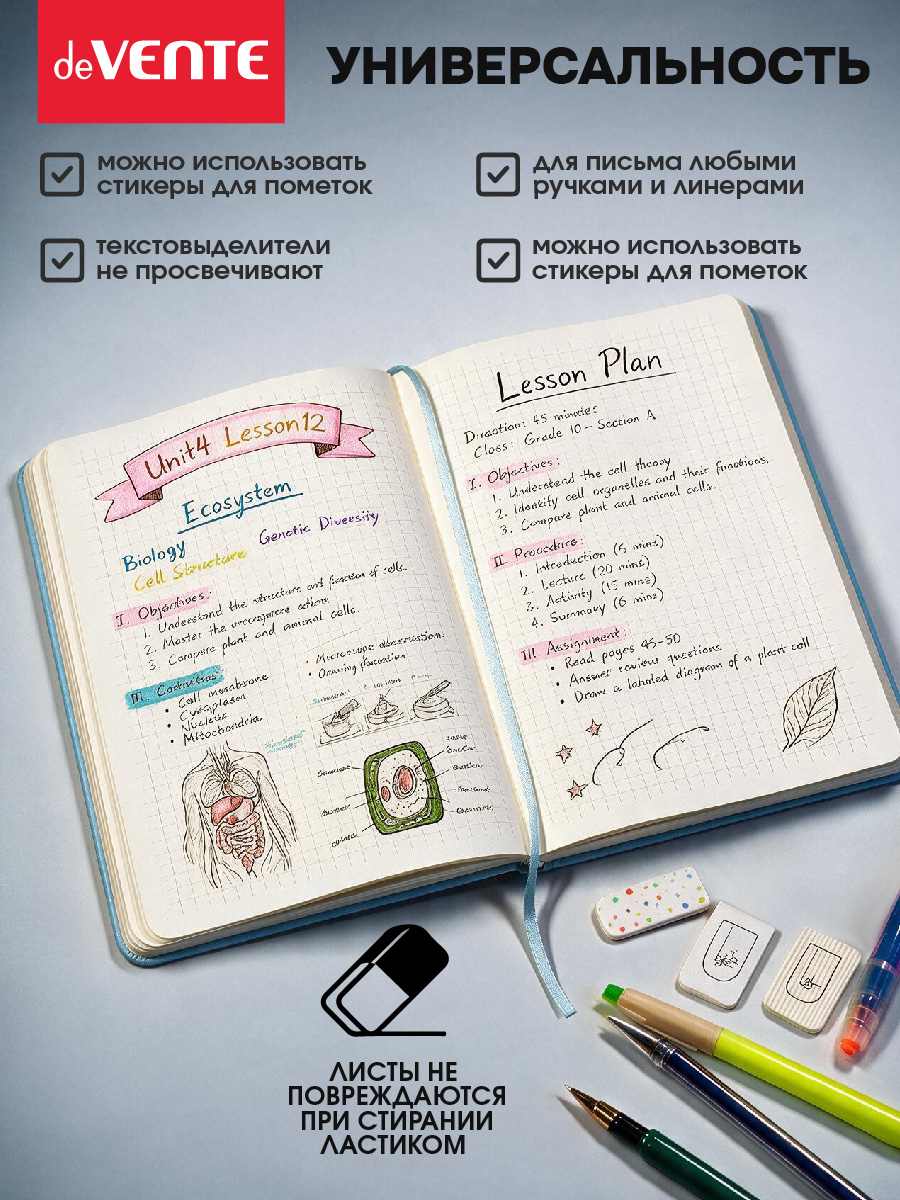 deVENTE
УНИВЕРСАЛЬНОСТЬ
можно использовать
стикеры для пометок
для письма любыми
ручками и линерами
текстовыделители
не просвечивают
можно использовать
стикеры для пометок
Unit4 Lesson12
Ecosystem
Biology
Genetic Diversity
Cell Structure
I. Objectives:
1. Understand the structure and function of cells.
2. Master the
3. Compare plant and animal cells.
III.
• Cell membrane
• Cytoplasm
• Nucleus
• Mitochondria
• Microscope observation.
• Drawing
Lesson Plan
45 minutes
Class: Grade 10 - Section A
I. Objectives:
1. Understand the cell theory
2. Identify cell organelles and their functions.
3. Compare plant and animal cells.
II. Procedure:
1. Introduction (5 mins)
2. Lecture (20 mins)
3. Activity (15 mins)
4. Summary (6 mins)
III. Assignment:
• Read pages 45-50
• Answer review questions
• Draw a labeled diagram of a plant cell
ЛИСТЫ НЕ
ПОВРЕЖДАЮТСЯ
ПРИ СТИРАНИИ
ЛАСТИКОМ